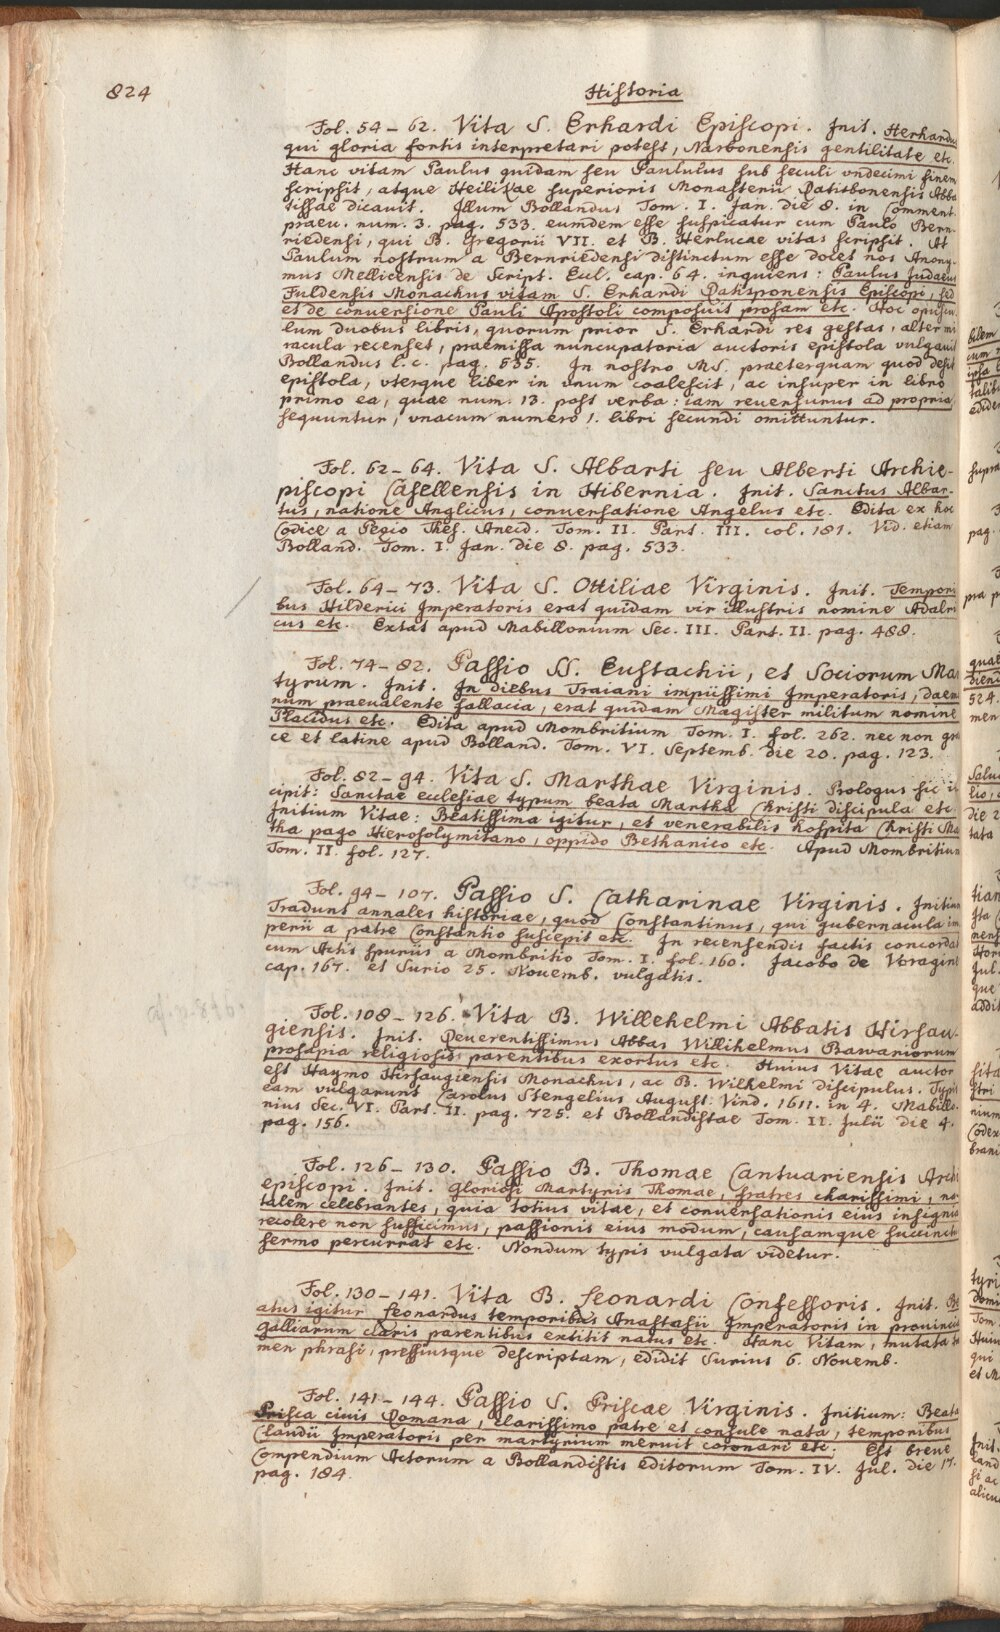 824
Historia
Fol. 54 – 62. Vita S. Erhardi Episcopi. Init. Herhardus
qui gloria fortis interpretari potest, Narbonensis gentilitate etc.
Hanc vitam Paulus quidam seu Paululus sub seculi vndecimi finem
scripsit, atque Heilikae superioris Monasterii Ratisbonensis Abba
tissae dicauit. Illum Bollandus Tom. I. Jan. die 8. in Comment.
praeu. num. 3. pag. 533. eumdem esse suspicatur cum Paulo Bern-
riedensi, qui B. Gregorii VII. et B. Herlucae vitas scripsit. At
Paulum nostrum a Bernriedensi distinctum esse docet nos Anony-
mus Mellicensis de Script. Eccl. cap. 64. inquiens: Paulus Judaeus
Fuldensis Monachus vitam S. Erhardi Ratisponensis Episcopi, sed
et de conuersione Pauli Apostoli composuit prosam etc. Hoc opuscu
lum duobus libris, quorum prior S. Erhardi res gestas, alter mi
racula recenset, praemissa nuncupatoria auctoris epistola vulgauit
Bollandus l. c. pag. 535. In nostro MS. praeterquam quod desit
epistola, vterque liber in vnum coalescit, ac insuper in libro
primo ea, quae num. 13. post verba: iam reuersurus ad propria
sequuntur, vnacum numero 1. libri secundi omittuntur.
Fol. 62 – 64. Vita S. Albarti seu Alberti Archie-
piscopi Casellensis in Hibernia. Init. Sanctus Albar-
tus, natione Anglicus, conuersatione Angelus etc. Edita ex hoc
Codice a Pezio Thes. Anecd. Tom. II. Part. III. col. 181. Vid. etiam
Bolland. Tom. I. Jan. die 8. pag. 533.
Fol. 64 – 73. Vita S. Ottiliae Virginis. Init. Tempori
bus Hilderici Imperatoris erat quidam vir illustris nomine Adalri
cus etc. Extat apud Mabillonium Sec. III. Part. II. pag. 488.
Fol. 74 – 82. Passio SS. Eustachii, et Sociorum Mar
tyrum. Init. In diebus Traiani impiissimi Imperatoris, daemo
num praeualente fallacia, erat quidam Magister militum nomine
Placidus etc. Edita apud Mombritium Tom. I. fol. 262. nec non grae
ce et latine apud Bolland. Tom. VI. Septemb. die 20. pag. 123.
Fol. 82 – 94. Vita S. Marthae Virginis. Prologus sic in
cipit: Sanctae ecclesiae typum beata Martha Christi discipula etc.
Initium Vitae: Beatissima igitur, et venerabilis hospita Christi Mar
tha pago Hierosolymitano, oppido Bethanico etc. Apud Mombritium
Tom. II. fol. 127.
Fol. 94 – 107. Passio S. Catharinae Virginis. Initium
Tradunt annales historiae, quod Constantinus, qui gubernacula im
perii a patre Constantio suscepit etc. In recensendis factis concordat
cum Actis spuriis a Mombritio Tom. I. fol. 160. Jacobo de Voragine
cap. 167. et Surio 25. Nouemb. vulgatis.
Fol. 108 – 126. Vita B. Willehelmi Abbatis Hirsau-
giensis. Init. Reuerentissimus Abbas Willihelmus Bawariorum
prosapia religiosis parentibus exortus etc. Huius Vitae auctor
est Haymo Hirsaugiensis Monachus, ac B. Wilhelmi discipulus. Typis
eam vulgarunt Carolus Stengelius August. Vind. 1611. in 4. Mabillo-
nius Sec. VI. Part. II. pag. 725. et Bollandistae Tom. II. Julii die 4.
pag. 156.
Fol. 126 – 130. Passio B. Thomae Cantuariensis Archi
episcopi. Init. Gloriosi Martyris Thomae, fratres charissimi, na-
talem celebrantes, quia totius vitae, et conuersationis eius insignia
recolere non sufficimus, passionis eius modum, causamque succincte
sermo percurrat etc. Nondum typis vulgata videtur.
Fol. 130 – 141. Vita B. Leonardi Confessoris. Init. Be
atus igitur Leonardus temporibus Anastasii Imperatoris in prouincia
Galliarum claris parentibus extitit natus etc. Hanc Vitam, mutata ta
men phrasi, pressiusque descriptam, edidit Surius 6. Nouemb.
Fol. 141 – 144. Passio S. Priscae Virginis. Initium: Beata
Prisca ciuis Romana, clarissimo patre et consule nata, temporibus
Claudii Imperatoris per martyrium meruit coronari etc. Est breue
Compendium Actorum a Bollandistis editorum Tom. IV. Jul. die 17.
pag. 184.